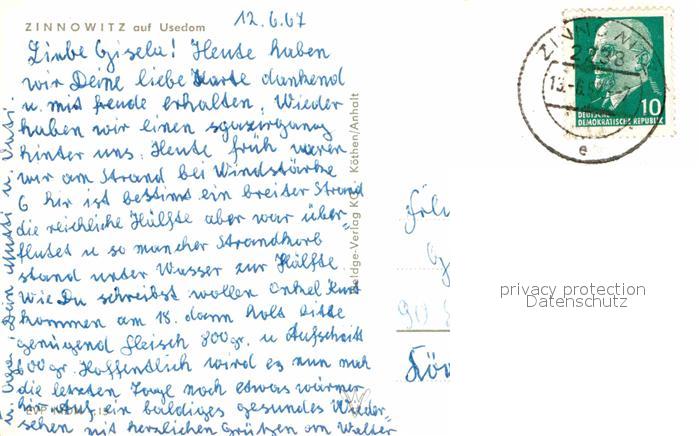 ZINNOWITZ auf Usedom
12.6.67
Liebe Gisela! Heute haben
wir Deine liebe Karte dankend
u. mit freude erhalten. Wieder
haben wir einen spaziergang
hinter uns. Heute früh waren
wir am Strand bei Windstärke
6 hir ist bestimt ein breiter Strand
die reichliche Hälfte aber war über-
flutet u so mancher Strandkorb
stand unter Wasser zur Hälfte
Wie Du schreibst wollen Onkel Kurt
kommen am 18. dann holt bitte
genügend fleisch 800gr. u Aufschnitt
600gr. Hoffentlich wird es nun noch
die letzten Tage noch etwas wärmer
hir. Auf ein baldiges gesundes Wieder-
sehen mit herzlichen Grüßen an Walter
Deine Mutti u. Vati
Köthen/Anhalt
ZINNOWITZ
2238
13.-6.
e
10
DEUTSCHE
DEMOKRATISCHE REPUBLIK
privacy protection
Datenschutz